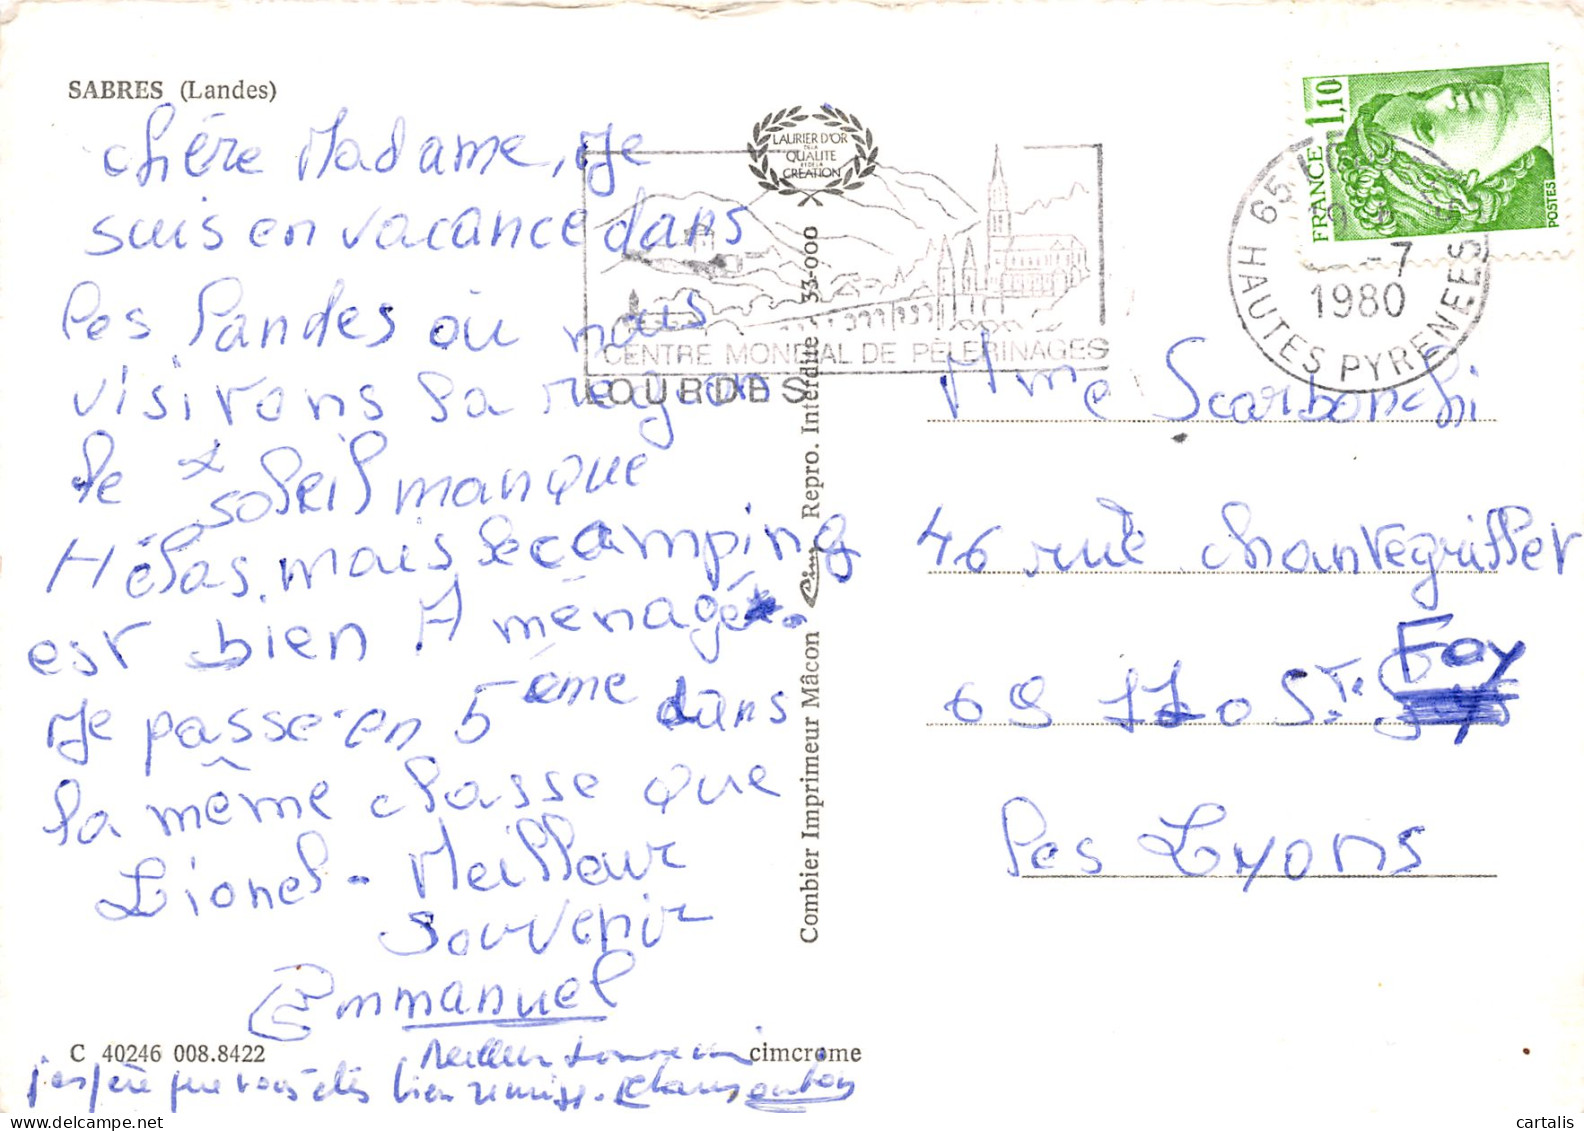 SABRES (Landes)
chère Madame, Je
suis en vacance dans
les landes où nous
visitons la région
le soleil manque
Hélas, mais le camping
est bien Aménagé.
Je passe en 5ème dans
la même classe que
Lionel - Meilleur
souvenir
Emmanuel
Meilleur souvenir
j'espère que vous êtes bien remise.
C 40246 008.8422
cimcrome
LAURIER D'OR
DE LA
QUALITE
ET DE LA
CREATION
CENTRE MONDIAL DE PÈLERINAGES
LOURDES
Combier Imprimeur Mâcon Cim Repro. Interdite 33-000
FRANCE 1,10
POSTES
65
-7
1980
HAUTES PYRENEES
Mme Scarbonchi
46 rue chantegrillet
69 110 Ste Foy
les Lyons
cartalis